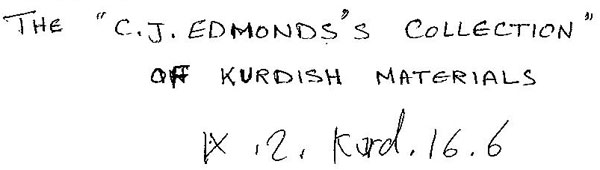 THE "C.J. EDMONDS'S COLLECTION"
OF KURDISH MATERIALS
IX .2. Kurd. 16.6